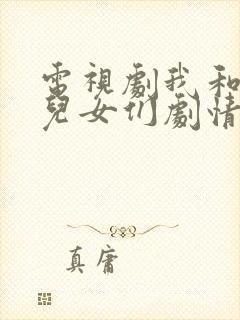 電視劇我和
兒女们劇情
真庸